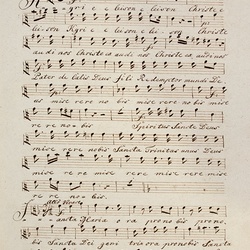 Kyri e e leison e leison Christe e
leison Kyri e e leison e lei son Christe
audi nos Christe audi nos Christe, audi nos
Pater de Celis Deus fi li Redemptor mundi De
us mise rere no bis mise rere no bis mise
re re no bis. Spiritus Sancte Deus
mise re re nobis Sancta Trinitas unus Deus
mise re re mise rere mise rere mise
re re no bis.
Sancta Maria o ra pro nobis pro no
bis Sancta Dei geni trix ora pro nobis Sancta